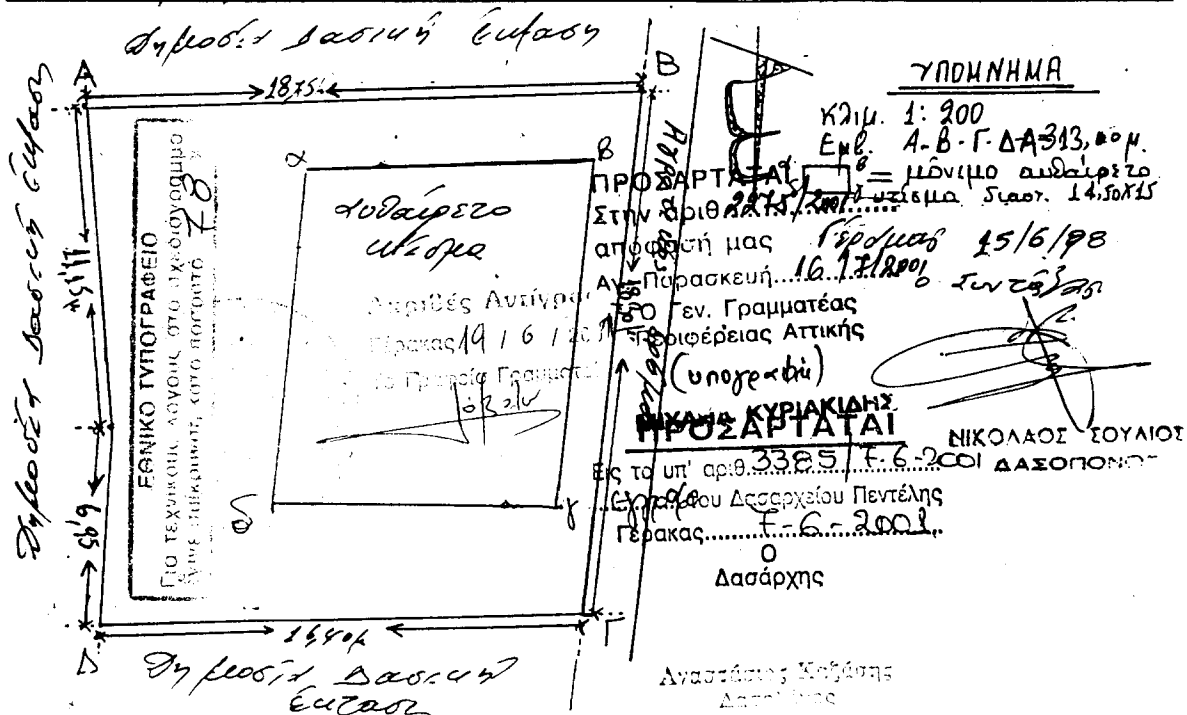 Δημοσία Δασική Έκταση
Δημοσία Δασική Έκταση
Α
18,75
Β
11,15
6,95
ΕΘΝΙΚΟ ΤΥΠΟΓΡΑΦΕΙΟ
Για τεχνικούς λόγους στο σχεδιάγραμμα
έγινε σμίκρυνση, κατά ποσοστό 78
α
β
αυθαίρετο
κτίσμα
Ακριβές Αντίγρα
Γέρακας 19 / 6 / 20
Γραμματεί
δ
γ
Δ
16,40μ
Γ
Δημοσία Δασική
Έκταση
ΥΠΟΜΝΗΜΑ
Κλιμ. 1: 200
Εμβ. Α-Β-Γ-Δ-Α 313,
= μόνιμο αυθαίρετο
κτίσμα διαστ. 14,50Χ15
ΠΡΟΣΑΡΤΑΤΑΙ
Στην αριθ. 2275/2001
απόφασή μας
Αγ. Παρασκευή 16/7/2001
Ο Γεν. Γραμματέας
Περιφέρειας Αττικής
(υπογραφή)
ΚΥΡΙΑΚΙΔΗΣ
Γέρακας 15/6/98
Ο Συντάξας
ΝΙΚΟΛΑΟΣ ΣΟΥΛΙΟΣ
ΔΑΣΟΠΟΝΟΣ
ΠΡΟΣΑΡΤΑΤΑΙ
Εις το υπ' αριθ. 3385/7-6-2001
έγγραφο του Δασαρχείου Πεντέλης
Γέρακας 7-6-2001
Ο
Δασάρχης
Αναστάσιος